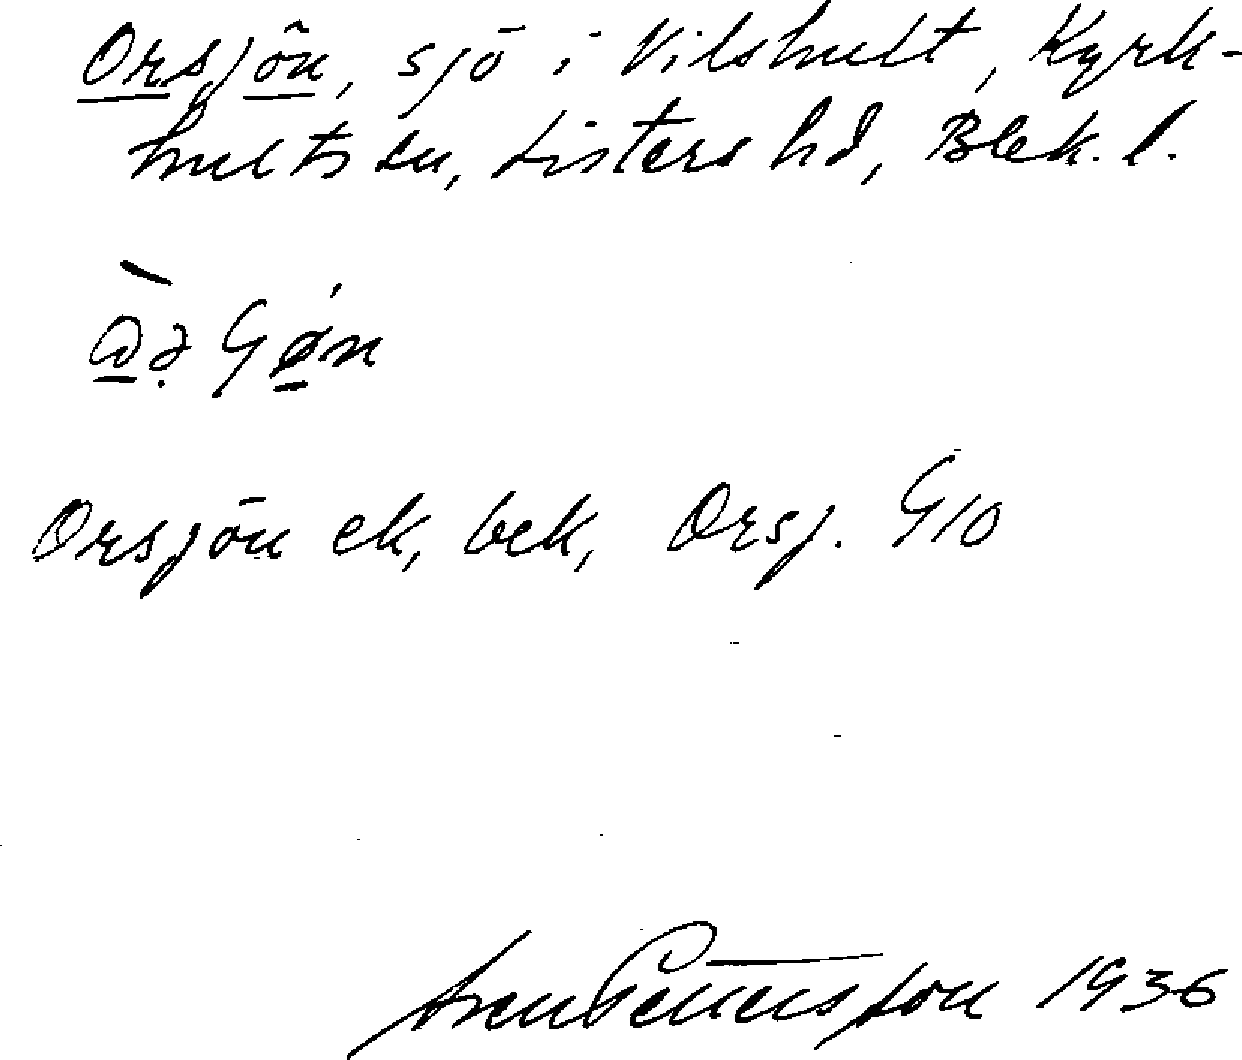 Orsjön, sjö i Vilshult, Kyrk-
hults sn, Listers hd, Blek. l.
Orsjön ek, bek, Orsj. G10
Sven Pettersson 1936